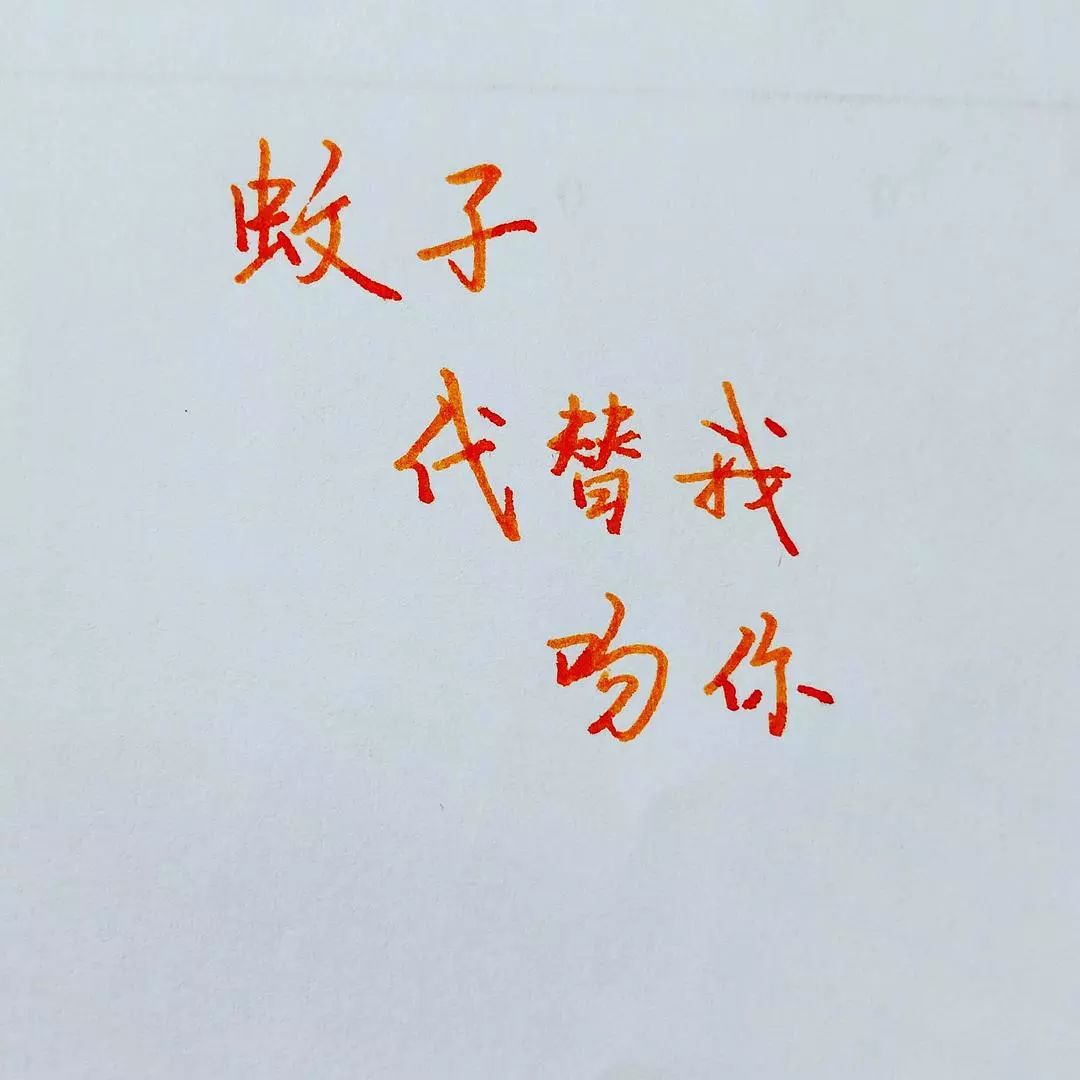 蚊子
代替我
吻你